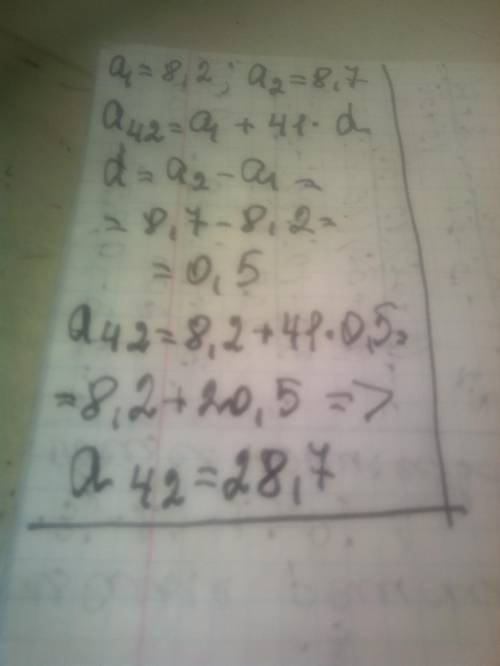 a₁=8,2; a₂=8,7
a₄₂=a₁+41·d
d=a₂-a₁=
=8,7-8,2=
=0,5
a₄₂=8,2+41·0,5=
=8,2+20,5=>
a₄₂=28,7